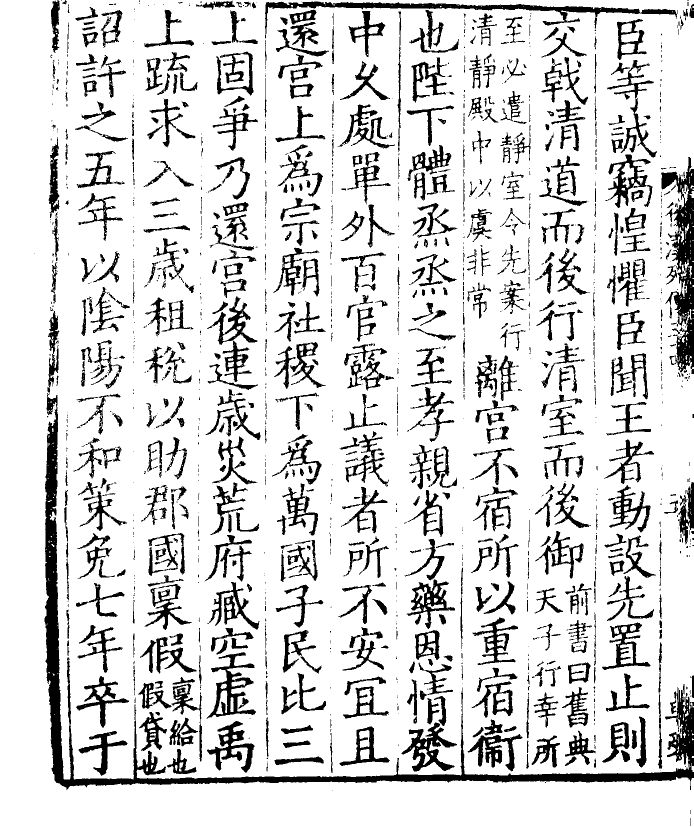 臣等誠竊惶懼臣聞王者動設先置止則
交戟清道而後行清室而後御前書曰舊典天子行幸所
至必遣靜室令先案行清靜殿中以虞非常離宮不宿所以重宿衞
也陛下體烝烝之至孝親省方藥恩情發
中乆處單外百官露止議者所不安冝且
還宮上爲宗廟社稷下爲萬國子民比三
上固爭乃還宮後連歳災荒府臧空虛禹
上疏求入三歳租稅以助郡國稟假稟給也假貸也
詔許之五年以陰陽不和策免七年卒于